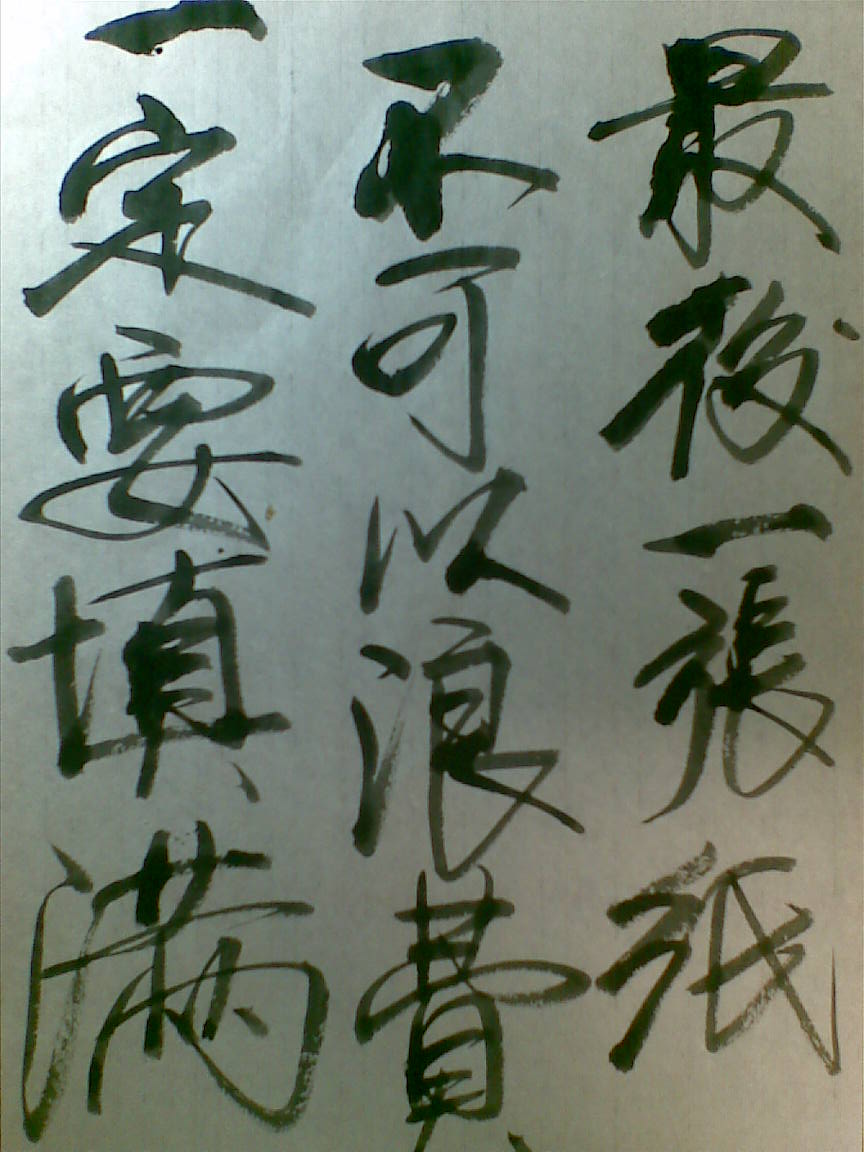 最後一張紙
不可以浪費
一定要填滿